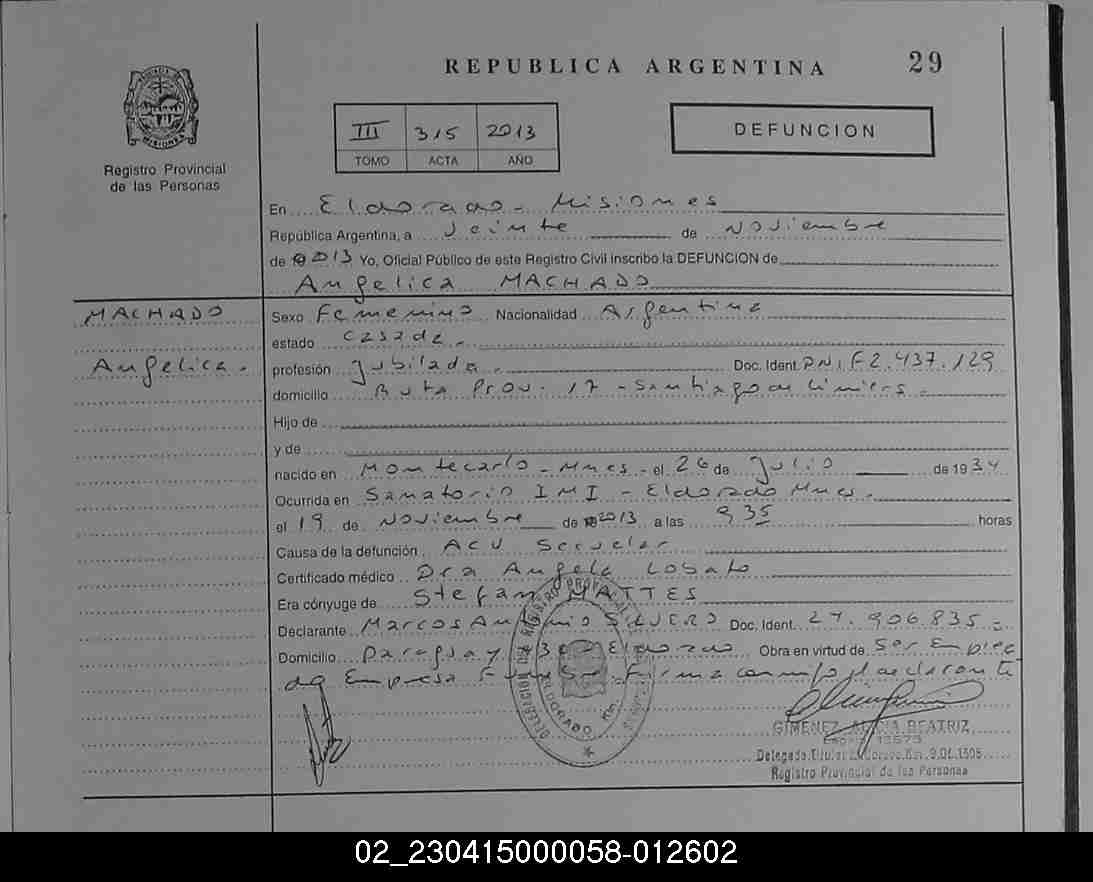 REPUBLICA ARGENTINA
29
III 315 2013
TOMO ACTA AÑO
DEFUNCION
Registro Provincial
de las Personas
En Eldorado - Misiones
República Argentina, a Veinte de Noviembre
de 2013 Yo, Oficial Público de este Registro Civil inscribo la DEFUNCION de
Angelica MACHADO
MACHADO
Angelica.
Sexo Femenino Nacionalidad Argentina
estado casada.
profesión jubilada. Doc. Ident. DNI F2.437.129
domicilio Ruta Prov. 17 - Santiago de Liniers.
Hijo de
y de
nacido en Montecarlo - Mnes - el 26 de Julio de 1934
Ocurrida en Sanatorio IMI - Eldorado Mnes.
el 19 de Noviembre de 2013 a las 9 35 horas
Causa de la defunción ACV Secuelar
Certificado médico Dra Angela Lobato
Era cónyuge de Stefan MATTES
Declarante Marcos Antonio SILVERO Doc. Ident. 27.906.835 -
Domicilio Paraguay Eldorado Obra en virtud de Ser Emplea
do Empresa Firma conmigo el declarante
REGISTRO PROVINCIAL
DELEGACION
ELDORADO Km.
GIMENEZ BEATRIZ
Delegada Titular Eldorado Km. 9
Registro Provincial de las Personas
02_230415000058-012602